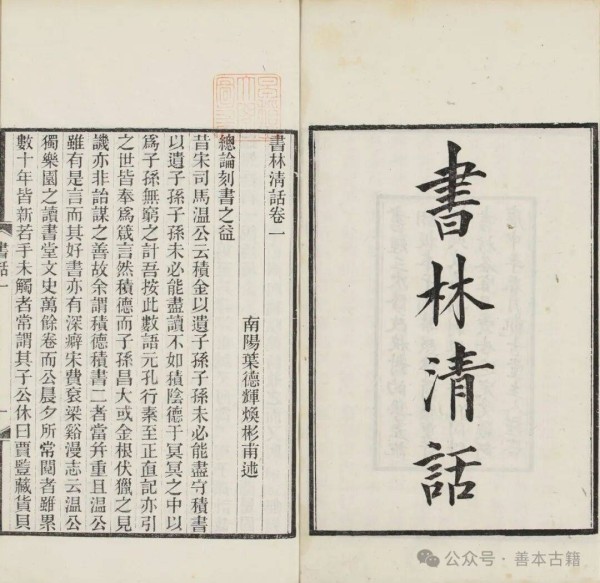 書林清話
書林清話卷一
南陽葉德輝煥彬甫述
總論刻書之益
昔宋司馬溫公云積金以遺子孫子孫未必能盡守積書
以遺子孫子孫未必能盡讀不如積陰德于冥冥之中以
爲子孫無窮之計吾按此數語元孔行素至正直記亦引
之世皆奉爲箴言然積德而子孫昌大或金根伏獵之見
譏亦非詒謀之善故余謂積德積書二者當并重且溫公
雖有是言而其好書亦有深癖宋費袞梁谿漫志云溫公
獨樂園之讀書堂文史萬餘卷而公晨夕所常閱者雖累
數十年皆新若手未觸者常謂其子公休曰賈豎藏貨貝
書話一
一
公众号·善本古籍